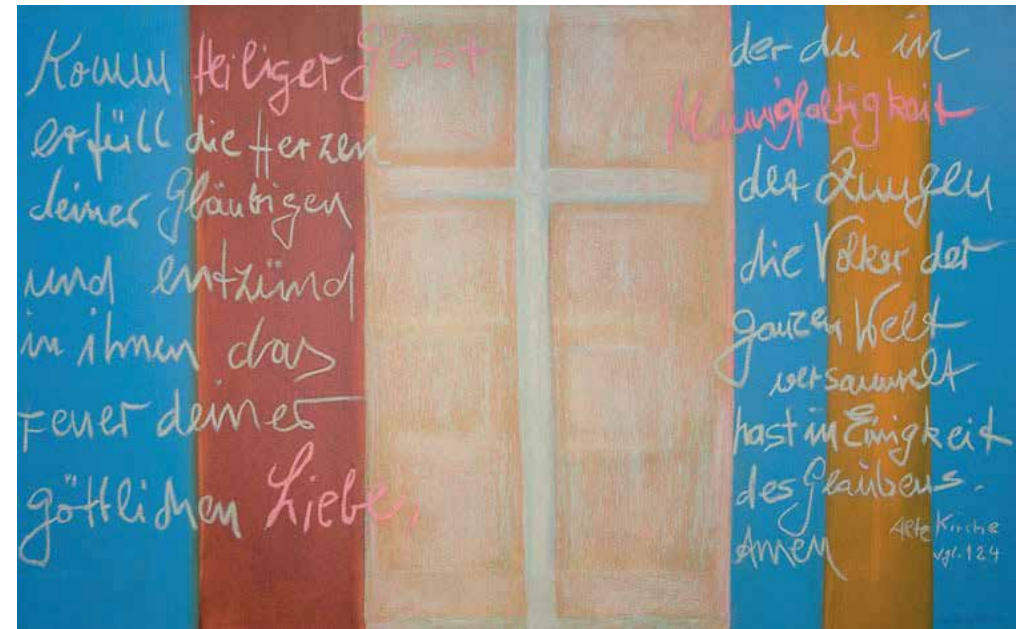 Komm, Heiliger Geist
erfüll die Herzen
deiner Gläubigen
und entzünd
in ihnen das
Feuer deiner
göttlichen Liebe,
der du in
Mannigfaltigkeit
der Zungen
die Völker der
ganzen Welt
versammelt
hast in Einigkeit
des Glaubens.
Amen
Alte Kirche
vgl. 124